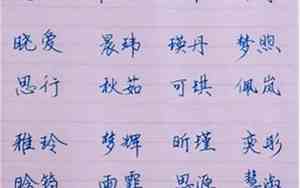 晓爱 晨玮 瑛丹 梦煦
思行 秋茹 可琪 佩岚
雅玲 梦辉 昕瑾 奕彤
思源